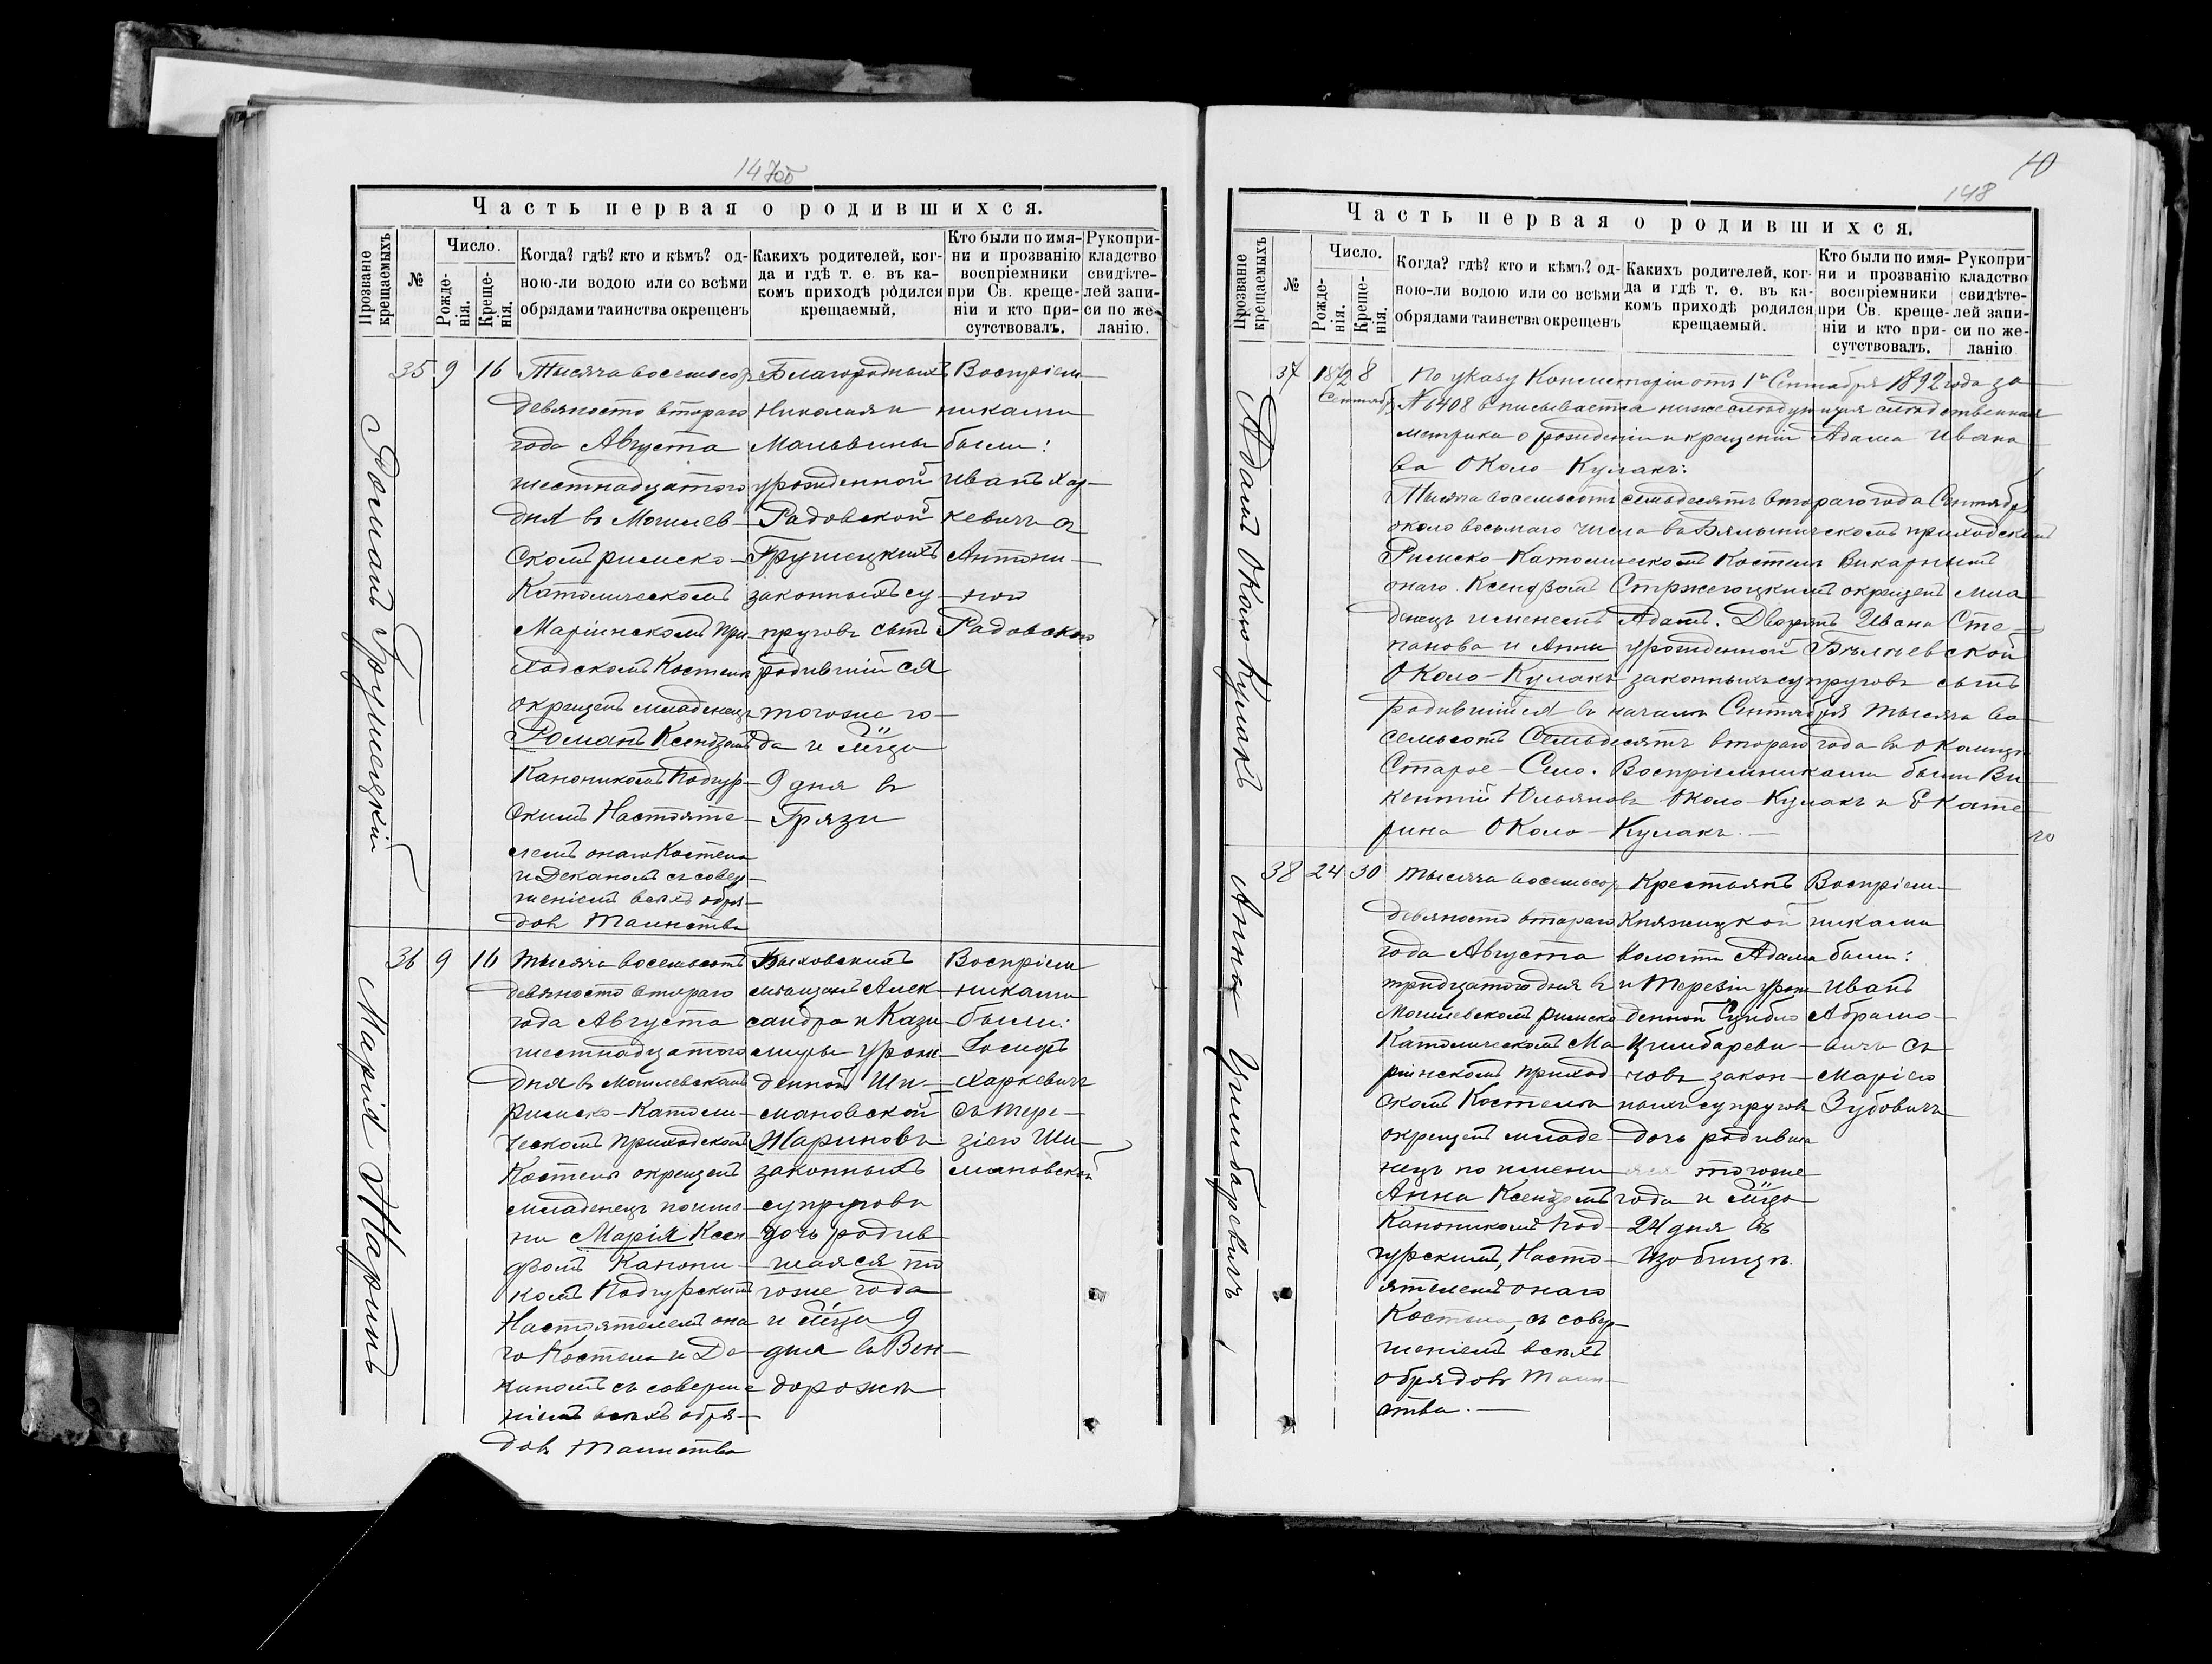 147об
Часть первая о родившихся.
Прозваніе крещаемыхъ
№
Число.
Рожде-нія.
Креще-нія.
Когда? гдѣ? кто и кѣмъ? од-
ною-ли водою или со всѣми
обрядами таинства окрещенъ
Какихъ родителей, ког-
да и гдѣ т. е. въ ка-
комъ приходѣ родился
крещаемый.
Кто были по имя-
ни и прозванію
воспріемники
при Св. креще-
ніи и кто при-
сутствовалъ.
Рукопри-
кладство
свидѣте-
лей запи-
си по же-
ланію.
Романъ Грушецкій
35 9 16
Тысяча восемьсот
девяносто втораго
года Августа
шестнадцатого
дня въ Могилев-
скомъ римско-
Католическомъ
Маріинскомъ При
ходскомъ Костелѣ
окрещенъ младенецъ
Романъ Ксендзомъ
Каноникомъ Подгур-
скимъ Настояте-
лемъ онаго Костела
и Деканомъ съ совер-
шеніемъ всѣхъ обря-
довъ Таинства
Благородныхъ
Николая и
Мальвины
урожденной
Радовской
Грушецкихъ
законныхъ су-
пруговъ сынъ
родившійся
тогоже го-
да и м̃ца
9 дня въ
Грязи
Воспріем-
никами
были:
Иванъ Хар-
кевичъ с
Антони-
ною
Радовскою
Марія Жаринъ
36 9 16
Тысяча восемьсотъ
девяносто втораго
года Августа
шестнадцатого
дня въ Могилевскомъ
римско-Католи-
ческомъ приходскомъ
Костелѣ окрещенъ
младенецъ по име-
ни Марія Ксен-
дзомъ Канони-
комъ Подгурскимъ
Настоятелемъ она-
го Костела и Де-
каномъ съ соверше
ніемъ всѣхъ обря-
довъ Таинства
Быховскихъ
мѣщанъ Алек-
сандра и Кази-
миры урож-
денной Ши-
мановской
Жариновъ
законныхъ
супруговъ
дочь родив-
шаяся то
гоже года
и м̃ца 9
дня въ Вен-
дорожѣ
Воспріем
никами
были:
Іосифъ
Харкевичъ
съ Тере-
зіею Ши-
мановской
40
148
Часть первая о родившихся.
Прозваніе крещаемыхъ
№
Число.
Рожде-нія.
Креще-нія.
Когда? гдѣ? кто и кѣмъ? од-
ною-ли водою или со всѣми
обрядами таинства окрещенъ
Какихъ родителей, ког-
да и гдѣ т. е. въ ка-
комъ приходѣ родился
крещаемый.
Кто были по имя-
ни и прозванію
воспріемники
при Св. креще-
ніи и кто при-
сутствовалъ.
Рукопри-
кладство
свидѣте-
лей запи-
си по же-
ланію
Адамъ Около-Кулакъ
37 1872 8
Сентябр
По указу Консисторіи отъ 1го Сентября 1892 года за
№ 6408 вписывается нижеслѣдующая слѣдственная
метрика о рожденіи и крещеніи Адама Ивано
ва Около-Кулакъ:
Тысяча восемьсотъ семьдесятъ втораго года Сентябр
около восьмаго числа въ Бялыничскомъ приходскомъ
Римско-Католическомъ Костелѣ Викарнымъ
онаго Ксендзомъ Стржегоцкимъ окрещенъ мла
денецъ именемъ Адамъ. Дворянъ Ивана Сте-
панова и Анны урожденной Бѣлѣевской
Около-Кулакъ законныхъ супруговъ сынъ
родившійся въ началѣ Сентября тысяча во-
семьсотъ семьдесятъ втораго года въ околицѣ
Старое-Село. Воспріемниками были Ви-
кентій Юльяновъ Около-Кулакъ и Екате-
рина Около-Кулакъ.
Анна Цимбаревичъ
38 24 30
Тысяча восемьсот
девяносто втораго
года Августа
тридцатого дня въ
Могилевскомъ римско
Католическомъ Ма-
ріинскомъ приход-
скомъ Костелѣ
окрещенъ младе-
нецъ по имени
Анна Ксендзомъ
Каноникомъ Под-
гурскимъ, Насто-
ятелемъ онаго
Костела, съ совер-
шеніемъ всѣхъ
обрядовъ Таин-
ства.
Крестьянъ
Княжицкой
волости Адама
и Терезіи урож-
денной Сцибло
Цимбареви-
човъ закон-
ныхъ супруговъ
дочь родивша
яся тогоже
года и м̃ца
24 дня въ
Изобищѣ.
Воспріем-
никами
были:
Иванъ
Абрамо-
вичъ съ
Маріею
Зубовичъ